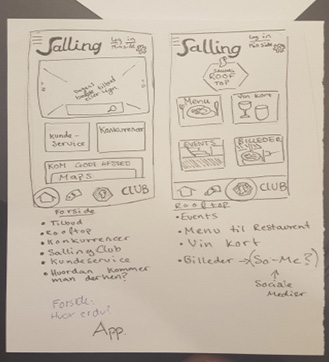 Salling
Log in
Min Side
kunde-
service
Konkurrencer
KOM GODT AFSTED
Maps
CLUB
Forside
• Tilbud
• Rooftop
• Konkurrencer
• Salling Club
• Kundeservice
• Hvordan kommer
man derhen?
Forside:
Hvor er du?
App.
Salling
Log in
Min Side
SALLING
ROOF
TOP
Menu
Vin kort
EVENTS
BILLEDER
CLUB
Rooftop
• Events
• Menu til Restaurant
• Vin Kort
• Billeder → (So-Me?)
Sociale
Medier